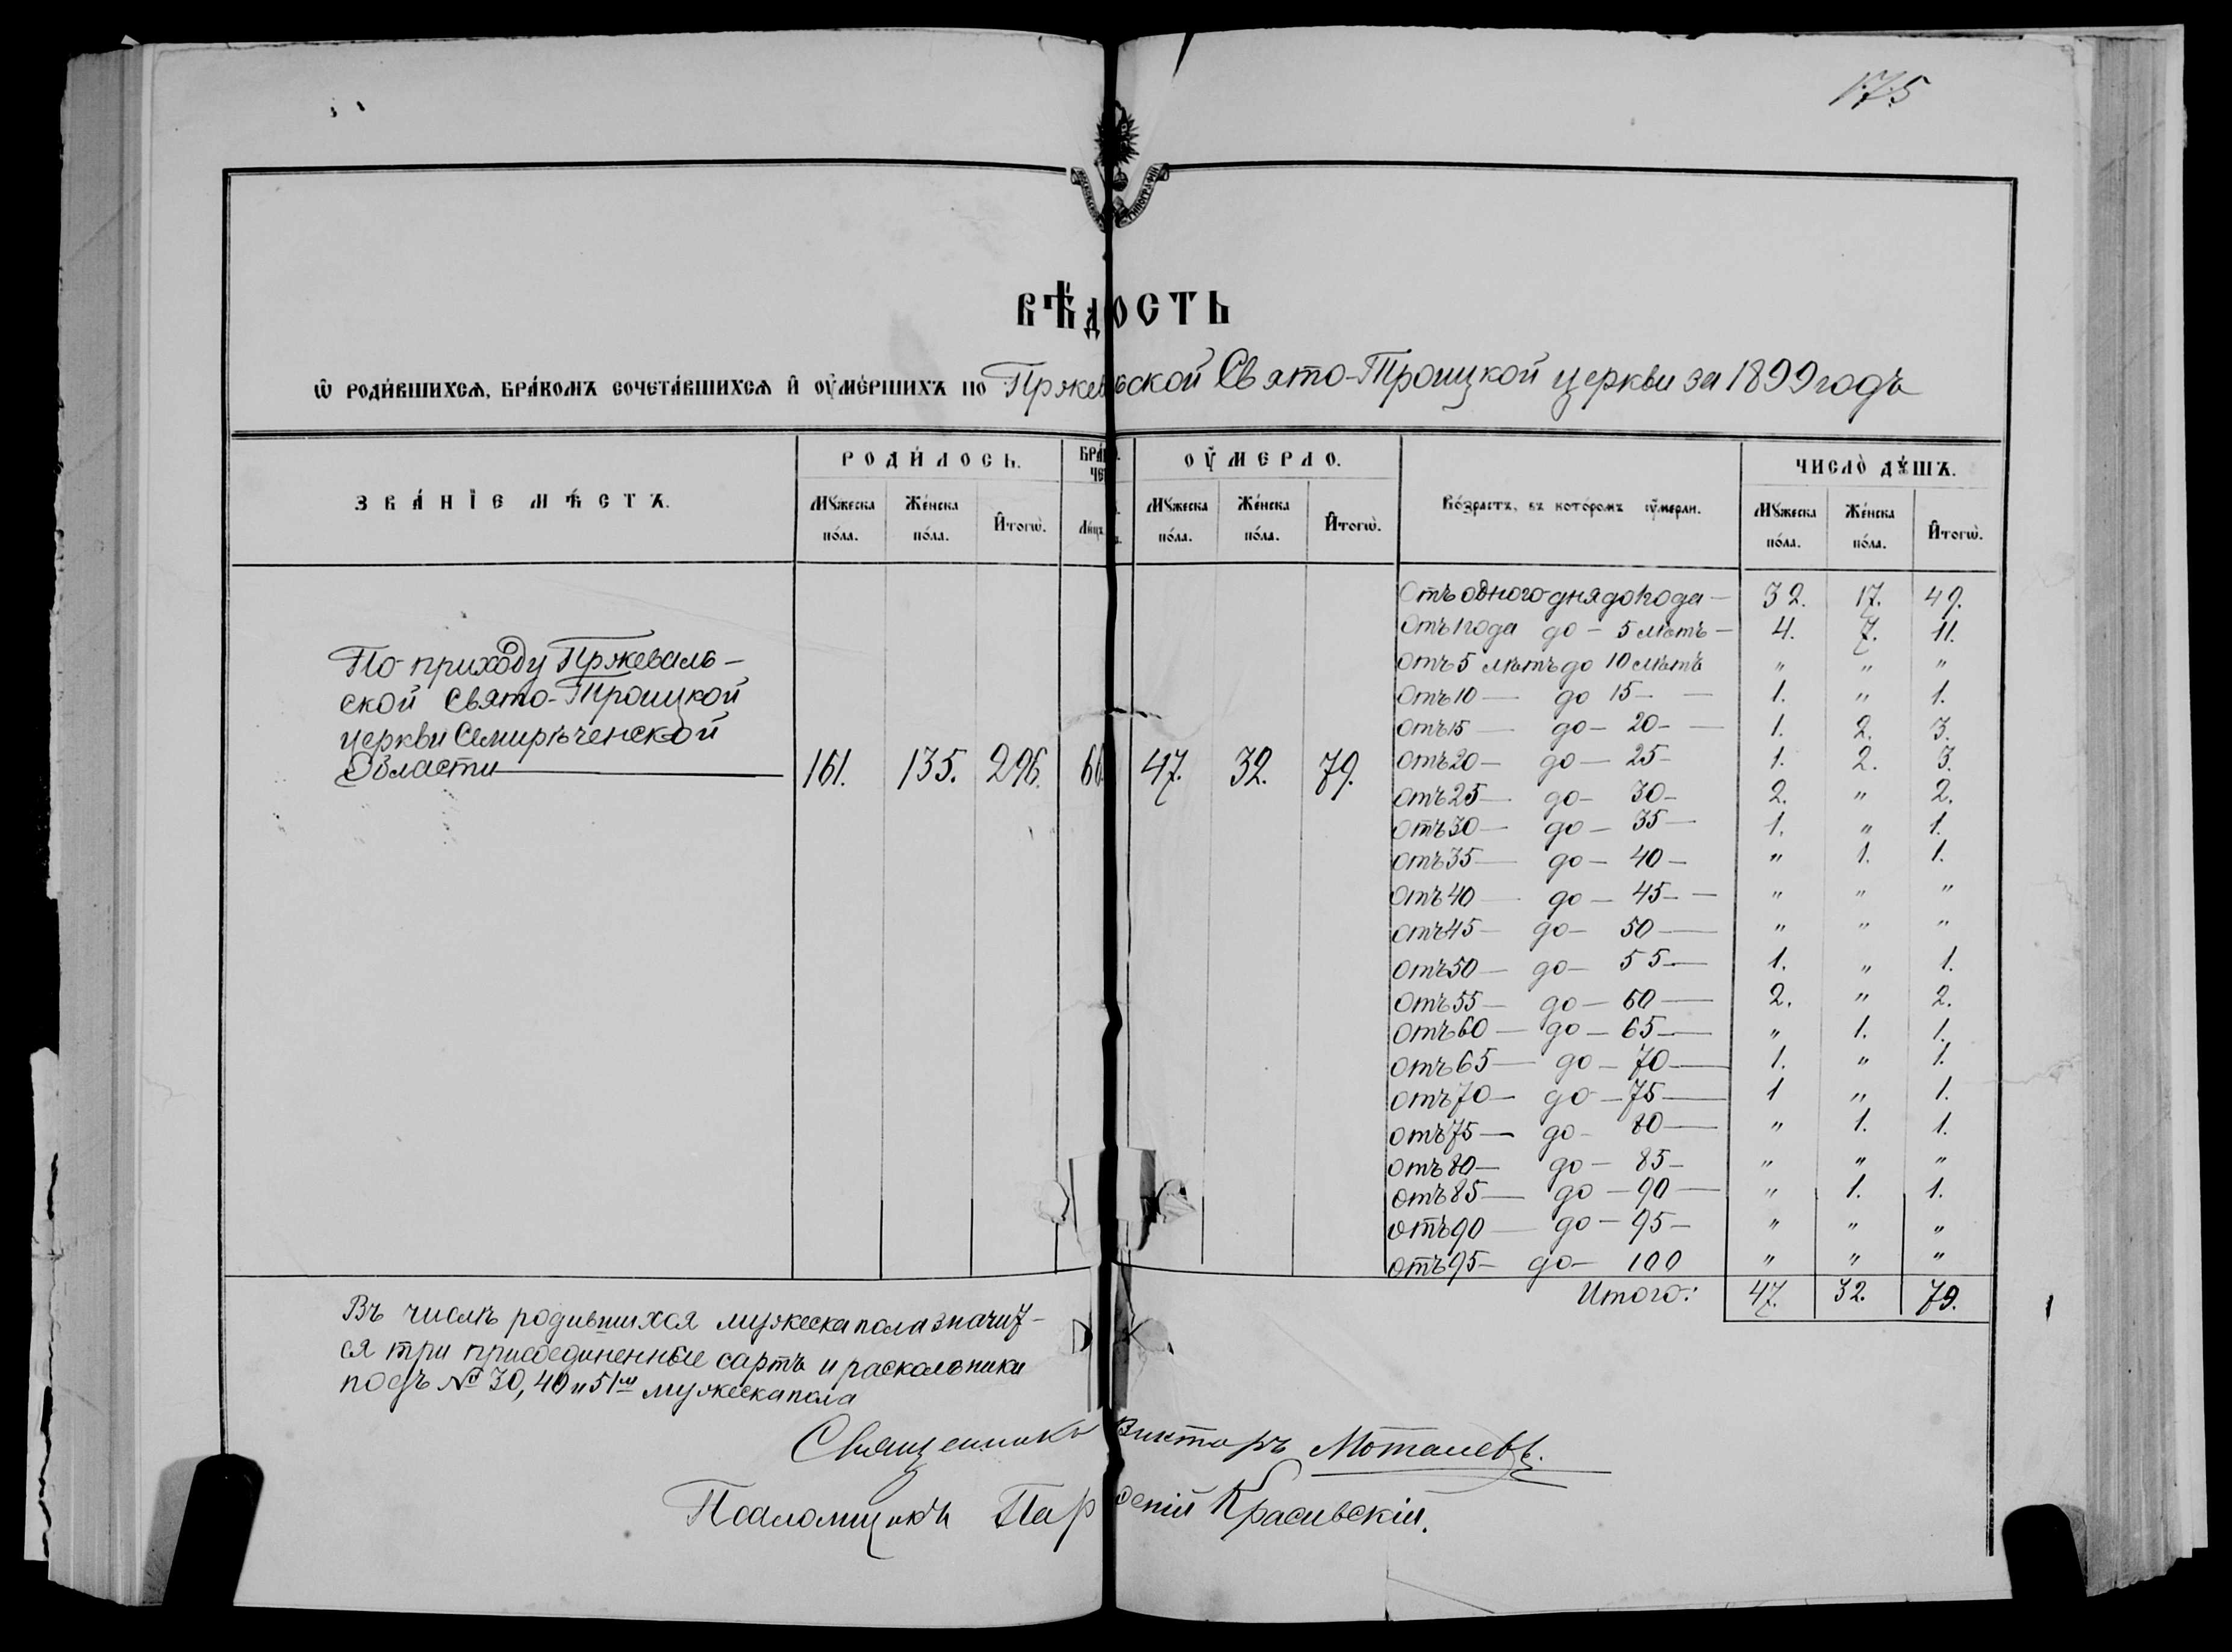 175
ВѢД ОСТЬ
Ѡ РОДИ́ВШИХСѦ, БРА́КОМЪ СОЧЕТА́ВШИХСѦ И҆ ОУ҆МЕ́РШИХЪ ПО Пржев ской Свято-Троицкой церкви за 1899 годъ
ЗВА́НІЕ МѢ́СТЪ. РОДИ́ЛОСЬ. ОУ҆́МЕРЛО. Во́зрастъ, въ кото́ромъ оу҆́мерли. ЧИСЛО̀ ДꙊ́ШЪ.
Мꙋ́жеска по́ла. Же́нска по́ла. И҆тогѡ̀. Мꙋ́жеска по́ла. Же́нска по́ла. И҆тогѡ̀. Мꙋ́жеска по́ла. Же́нска по́ла. И҆тогѡ̀.
По приходу Пржеваль-
ской Свято-Троицкой
церкви Семирѣченской
Области 161. 135. 296. 60 47. 32. 79.
Отъ одного дня до 1 года — 32. 17. 49.
Отъ 1 года до — 5 лѣтъ — 4. 7. 11.
Отъ 5 лѣтъ до 10 лѣтъ " " "
Отъ 10 — до 15 — 1. " 1.
Отъ 15 — до — 20 — 1. 2. 3.
Отъ 20 — до — 25 — 1. 2. 3.
Отъ 25 — до — 30 — 2. " 2.
Отъ 30 — до — 35 — 1. " 1.
Отъ 35 — до — 40 — " 1. 1.
Отъ 40 — до — 45 — " " "
Отъ 45 — до — 50 — " " "
Отъ 50 — до — 55 — 1. " 1.
Отъ 55 — до — 60 — 2. " 2.
Отъ 60 — до — 65 — " 1. 1.
Отъ 65 — до — 70 — 1. " 1.
Отъ 70 — до — 75 — 1 " 1.
Отъ 75 — до — 80 — " 1. 1.
Отъ 80 — до — 85 — " " "
Отъ 85 — до — 90 — " 1. 1.
Отъ 90 — до — 95 — " " "
Отъ 95 — до — 100 " " "
Итого: 47. 32. 79.
Въ числѣ родившихся мужеска пола значит-
ся три присоединенные сартъ и раскольники
подъ № 30, 40 и 51м мужеска пола
Священникъ Викторъ
Псаломщикъ Пар ѳеній Красивскій.